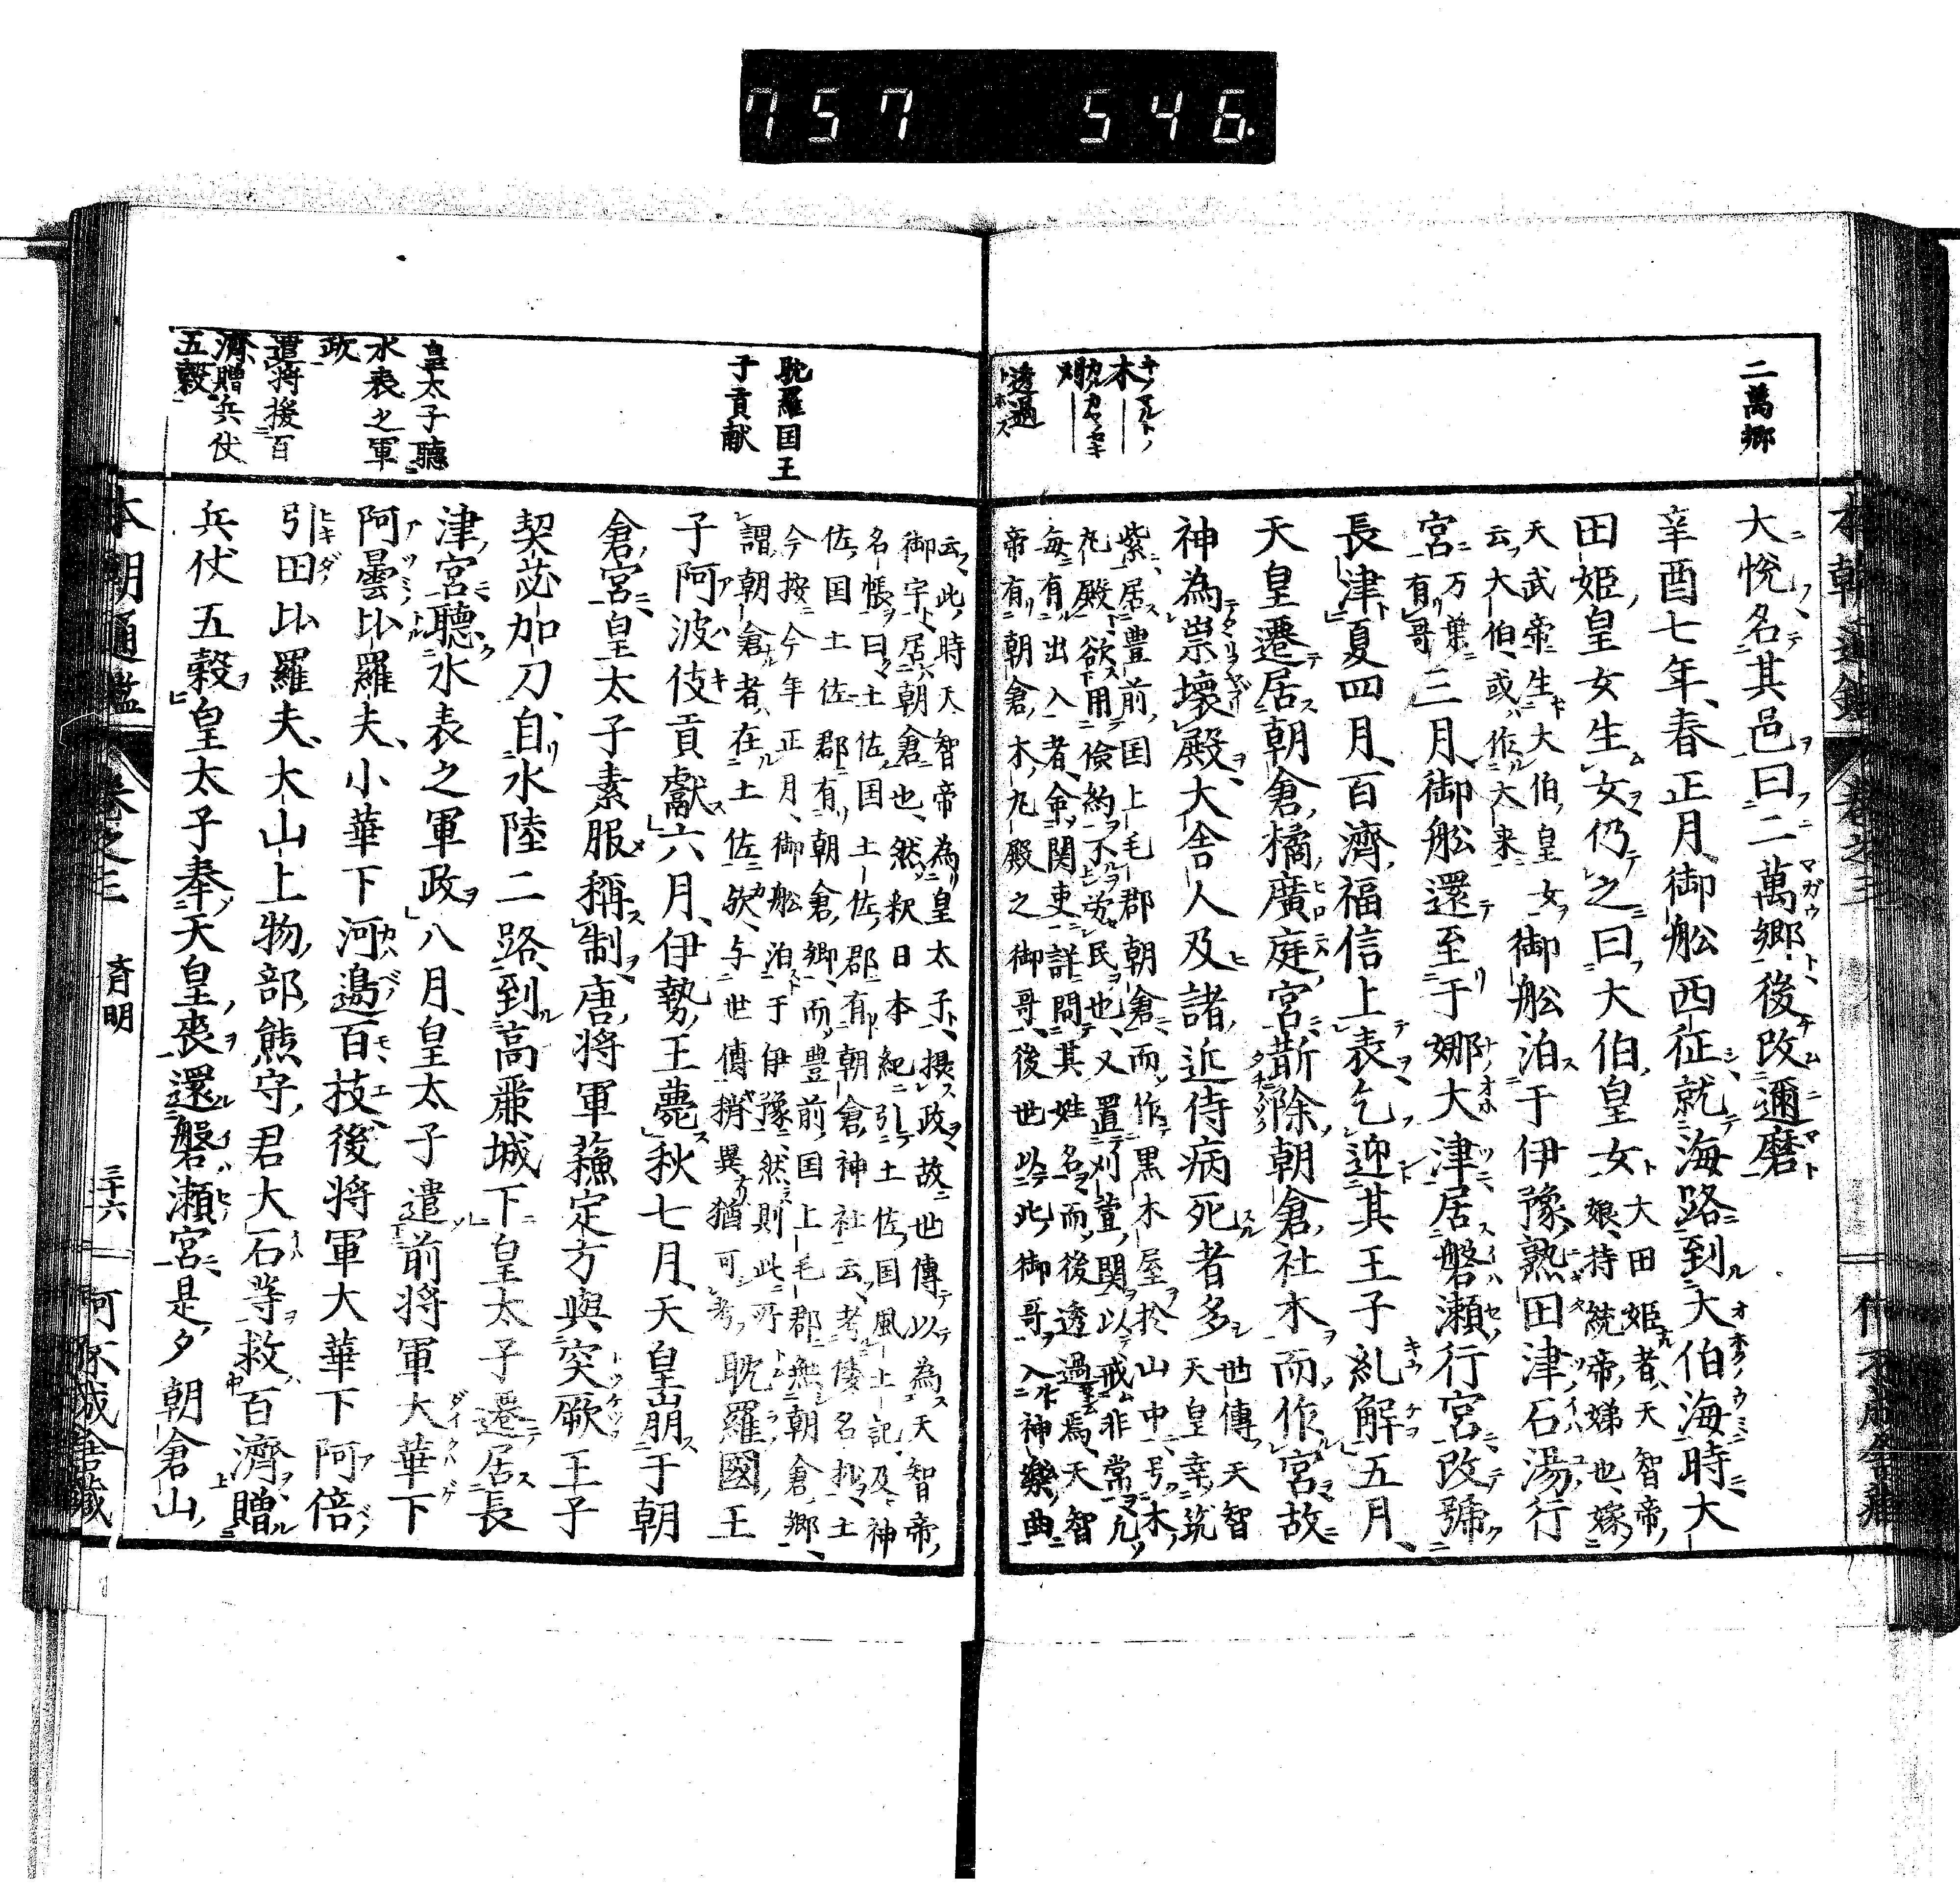 757 546.
二萬郷
大悅名其邑曰二萬郷後改邇磨
辛酉七年春正月御舩西征就海路到大伯海時大
田姫皇女生女仍之曰大伯皇女
大田姫者天智帝
娘持統帝娣也嫁
天武帝生大伯皇女
云大伯或作大来
御舩泊于伊豫熟田津石湯行
宮
万葉
有哥
三月御舩還至于娜大津居磐瀬行宮改號
長津夏四月百濟福信上表乞迎其王子糺解五月
天皇遷居朝倉橘廣庭宮斮除朝倉社木而作宮故
神為祟壞殿大舎人及諸近侍病死者多
世傳天智
天皇幸筑
紫居豊前国上毛郡朝倉而作黒木屋於山中号木
丸殿欲用儉約不労民也又置刈萱関以戒非常凡
毎有出入者令関吏詳問其姓名而後透過焉天智
帝有朝倉木丸殿之御哥後世以此御哥入神樂曲
木
刈
透過
耽羅国王
子貢献
云此時天智帝為皇太子摂政故世傳以為天智帝
御宇居朝倉也然釈日本紀引土佐国風土記及神
名帳曰土佐国土佐郡有朝倉神社云考倭名抄土
佐国土佐郡有朝倉郷而豊前国上毛郡無朝倉郷
今按今年正月御舩泊于伊豫然則此所
謂朝倉者在土佐欤与世傳稍異猶可考
耽羅國王
子阿波伎貢獻六月伊勢王薨秋七月天皇崩于朝
倉宮皇太子素服稱制唐将軍蘓定方與突厥王子
契苾加刀自水陸二路到高麗城下皇太子遷居長
津宮聽水表之軍政八月皇太子遣前将軍大華下
阿曇比羅夫小華下河邉百枝後将軍大華下阿倍
引田比羅夫大山上物部熊守君大石等救百濟贈
兵仗五穀皇太子奉天皇喪還磐瀬宮是夕朝倉山
皇太子聽
水表之軍
政
遣将援百
濟贈兵仗
五穀
本朝通鑑 卷之三 斉明 三十六